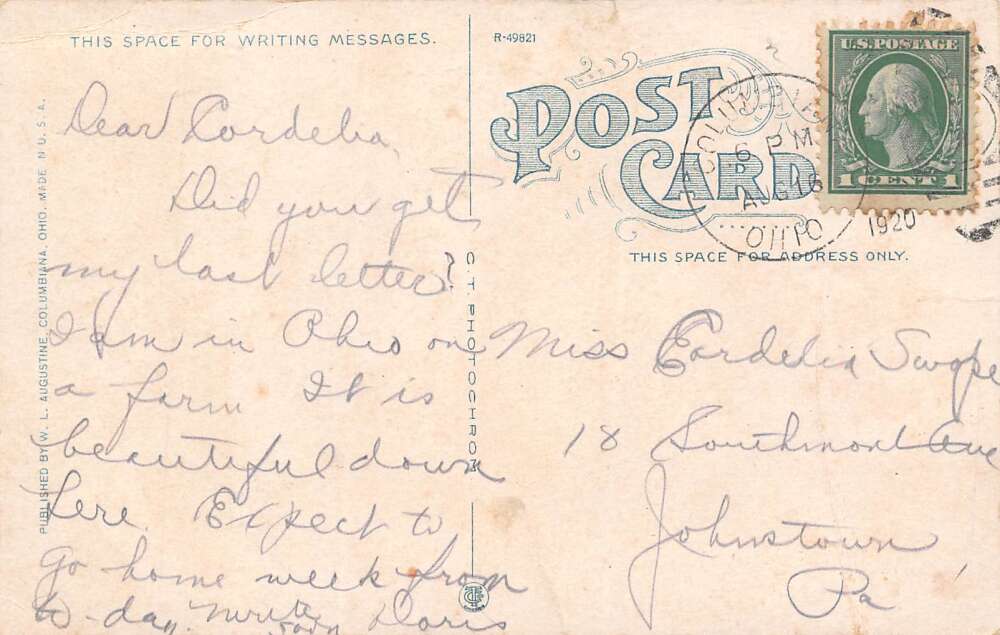 THIS SPACE FOR WRITING MESSAGES.
R-49821
POST CARD
U.S. POSTAGE
1 CENT 1
6 PM
AUG 16
1920
OHIO
THIS SPACE FOR ADDRESS ONLY.
PUBLISHED BY W. L. AUGUSTINE, COLUMBIANA, OHIO. MADE IN U.S.A.
C. T. PHOTOCHROM
Dear Cordelia,
Did you get
my last letter?
I am in Ohio on
a farm It is
beautiful down
here. Expect to
go home week from
to-day. write
soon Doris
Miss Cordelia Swope
18 Southmont Ave
Johnstown
Pa